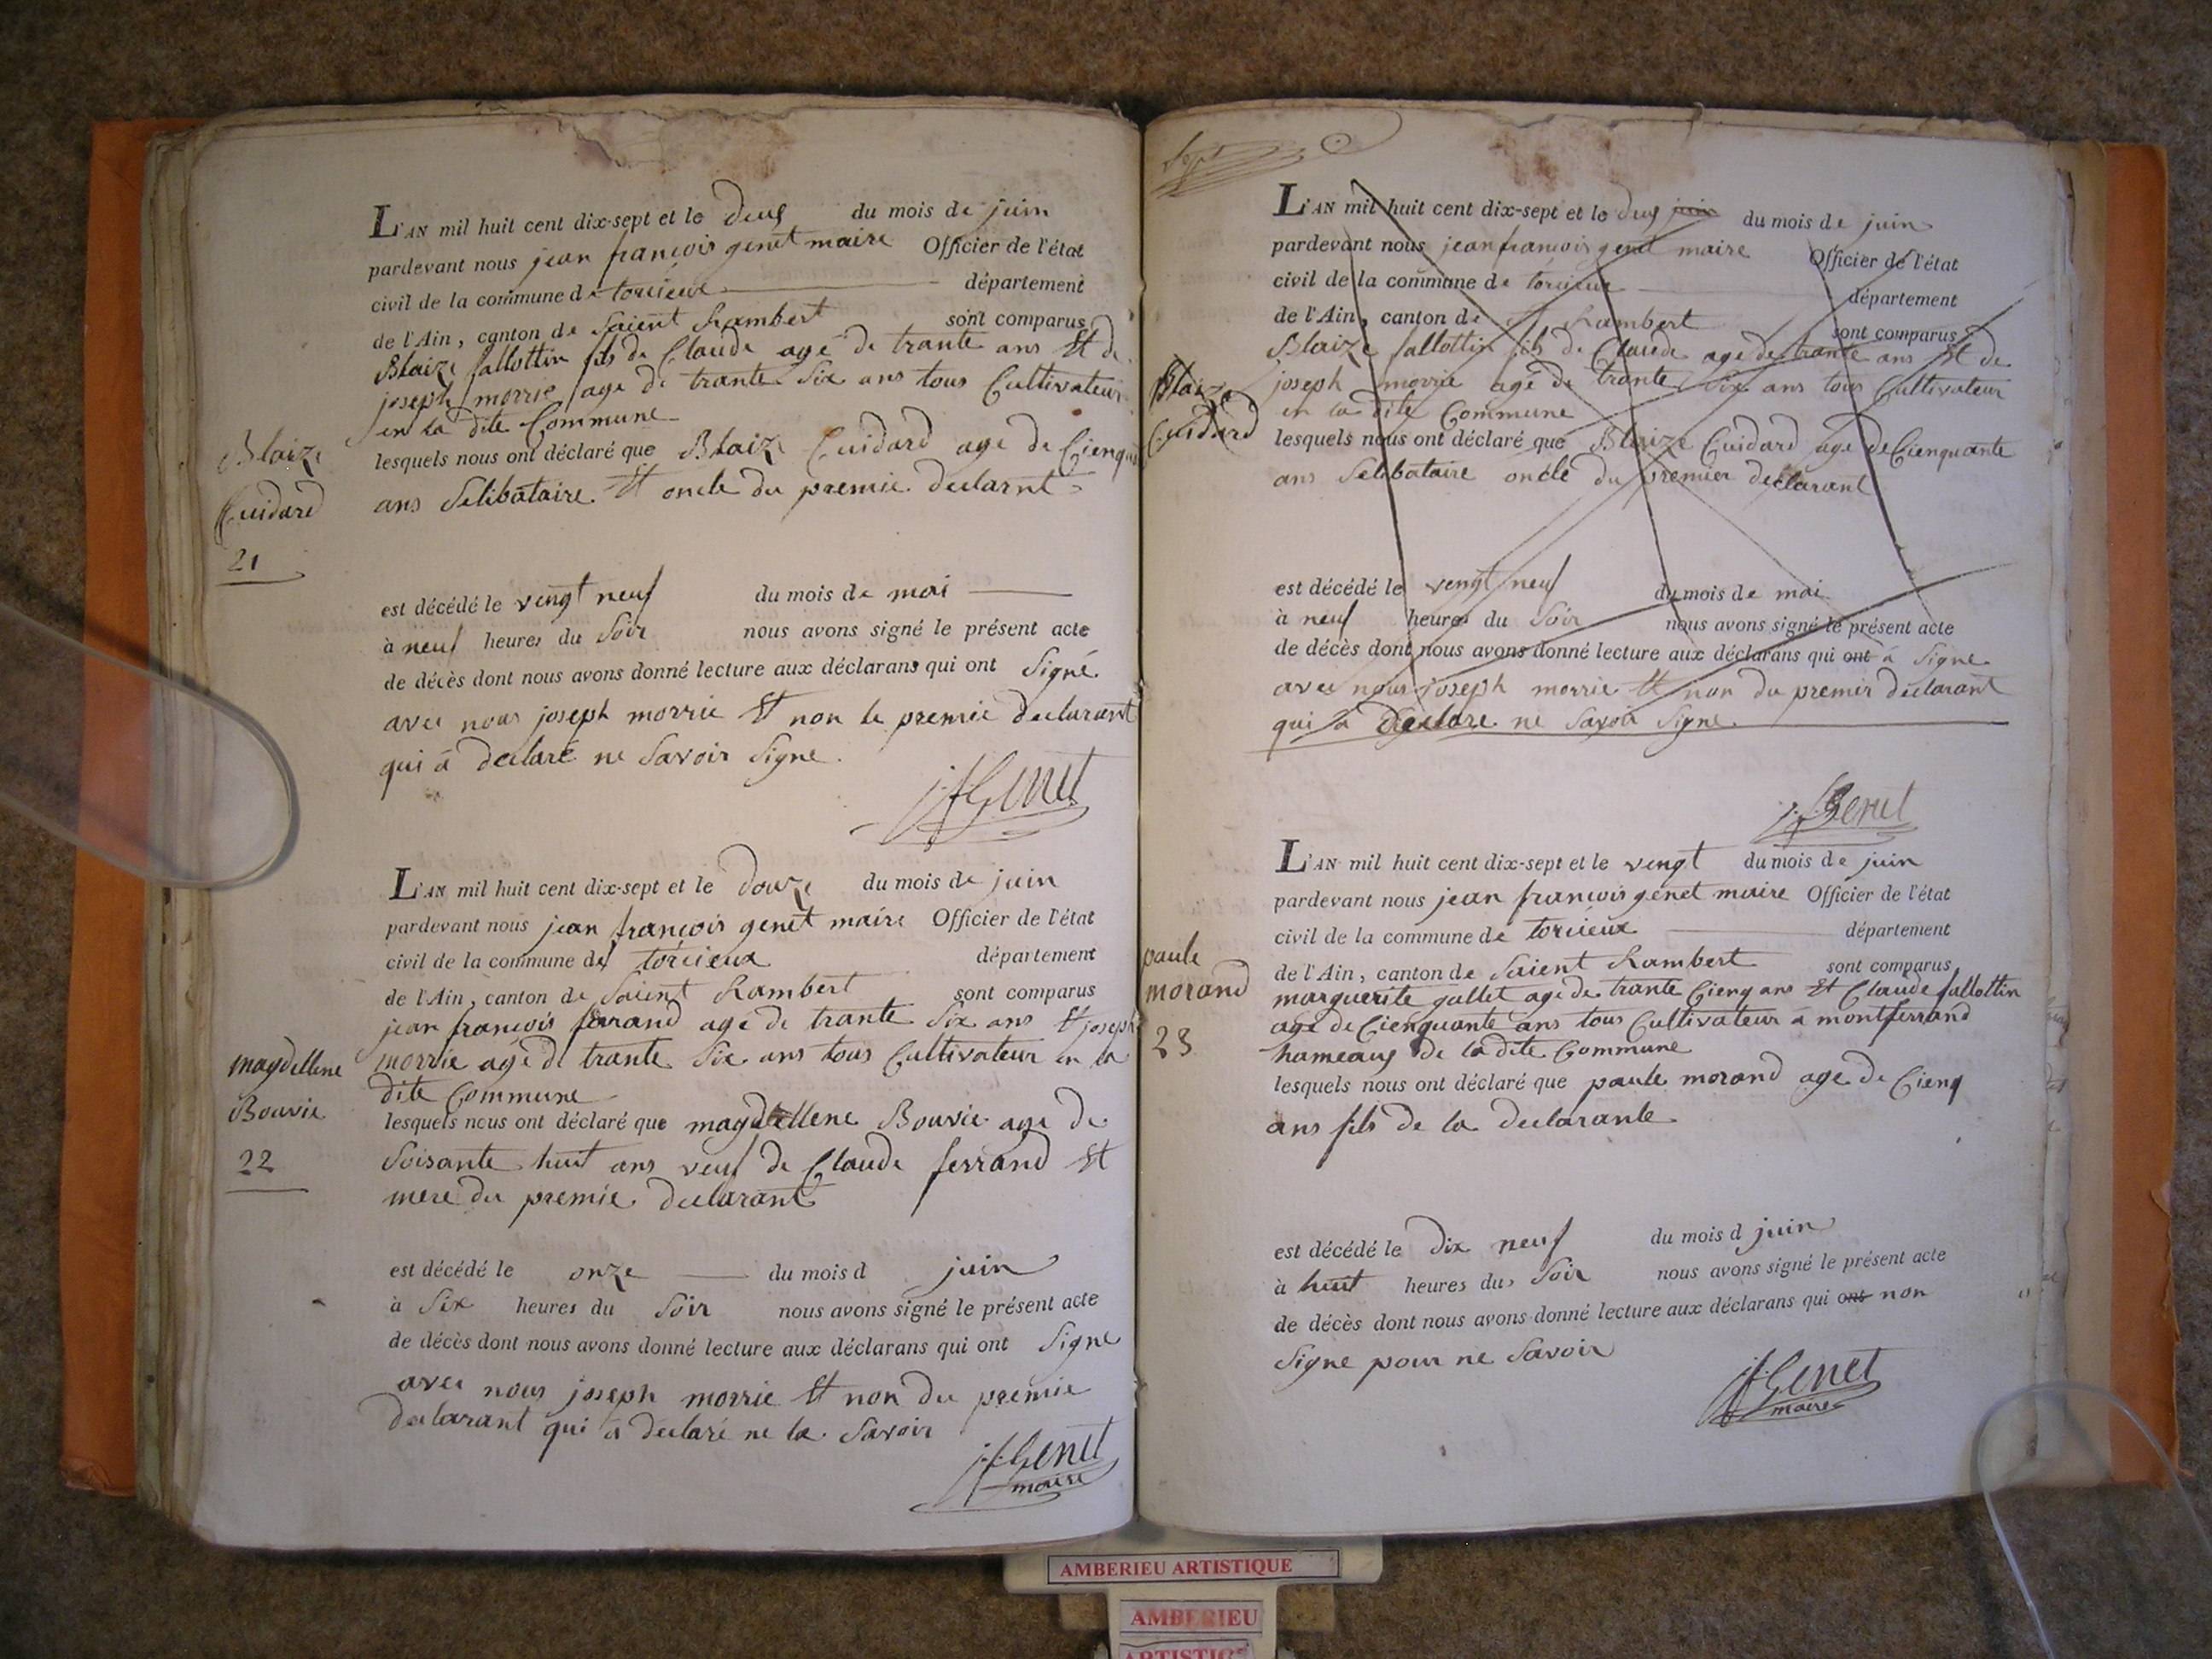 L'AN mil huit cent dix-sept et le deux du mois de juin
pardevant nous jean françois genet maire Officier de l'état
civil de la commune de torcieux département
de l'Ain, canton de Saient Rambert sont comparus
Blaize fallottin fils de Claude agé de trante ans Et de
joseph morrie age de trante Six ans tous Cultivateur
en la dite Commune
Blaize
Cuidard
21
lesquels nous ont déclaré que Blaize Cuidard age de Cienq
ans Selibataire Et oncle du premie declarnt
est décédé le vengt neuf du mois de mai
à neuf heures du Soir nous avons signé le présent acte
de décès dont nous avons donné lecture aux déclarans qui ont Signé
avec nous joseph morrie Et non le premie declarant
qui à declaré ne Savoir Signe.
j f Genet
L'AN mil huit cent dix-sept et le douze du mois de juin
pardevant nous jean françois genet maire Officier de l'état
civil de la commune de torcieux département
de l'Ain, canton de Saient Rambert sont comparus
jean françois farrand agé de trante Six ans Et joseph
morrie agé de trante Six ans tous Cultivateur en la
dite Commune
magdellene
Bouvie
22
lesquels nous ont déclaré que magdellene Bouvie age de
Soisante huit ans veuf de Claude ferrand Et
mere du premie declarant
est décédé le onze du mois d juin
à Six heures du Soir nous avons signé le présent acte
de décès dont nous avons donné lecture aux déclarans qui ont Signe
avec nous joseph morrie Et non du premie
declarant qui à declaré ne la Savoir
j f Genet
maire
Sept
L'AN mil huit cent dix-sept et le deux juin du mois de juin
pardevant nous jean françois genet maire Officier de l'état
civil de la commune de torcieux département
de l'Ain, canton de St Rambert sont comparus
Blaize fallottin fils de Claude age de trante ans Et de
joseph morrie agé de trante Six ans tous Cultivateur
en la dite Commune
Blaize
Cuidard
lesquels nous ont déclaré que Blaize Cuidard age de Cienquante
ans Selibataire oncle du premier declarant
est décédé le vengt neuf du mois de mai
à neuf heures du Soir nous avons signé le présent acte
de décès dont nous avons donné lecture aux déclarans qui ont à Signe
avec nous joseph morrie Et non du premir declarant
qui à declare ne Savoir Signe.
j f Genet
L'AN mil huit cent dix-sept et le vengt du mois de juin
pardevant nous jean françois genet maire Officier de l'état
civil de la commune de torcieux département
de l'Ain, canton de Saient Rambert sont comparus
marguerite gallet age de trante Cienq ans Et Claude fallottin
age de Cienquante ans tous Cultivateur a montferrand
hameaux de la dite Commune
paule
morand
23
lesquels nous ont déclaré que paule morand age de Cienq
ans fils de la declarante
est décédé le dix neuf du mois d juin
à huit heures du Soir nous avons signé le présent acte
de décès dont nous avons donné lecture aux déclarans qui ont non
Signe pour ne Savoir
j f Genet
maire
AMBERIEU ARTISTIQUE
AMBERIEU
ARTISTIQUE